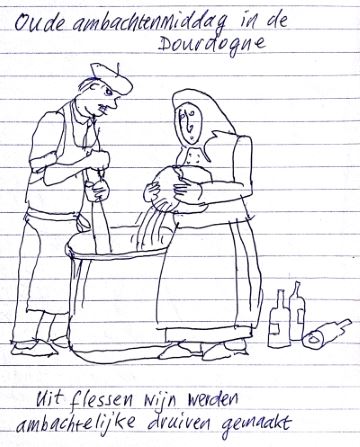 Oude ambachtenmiddag in de
Dourdogne
Uit flessen wijn werden
ambachtelijke druiven gemaakt